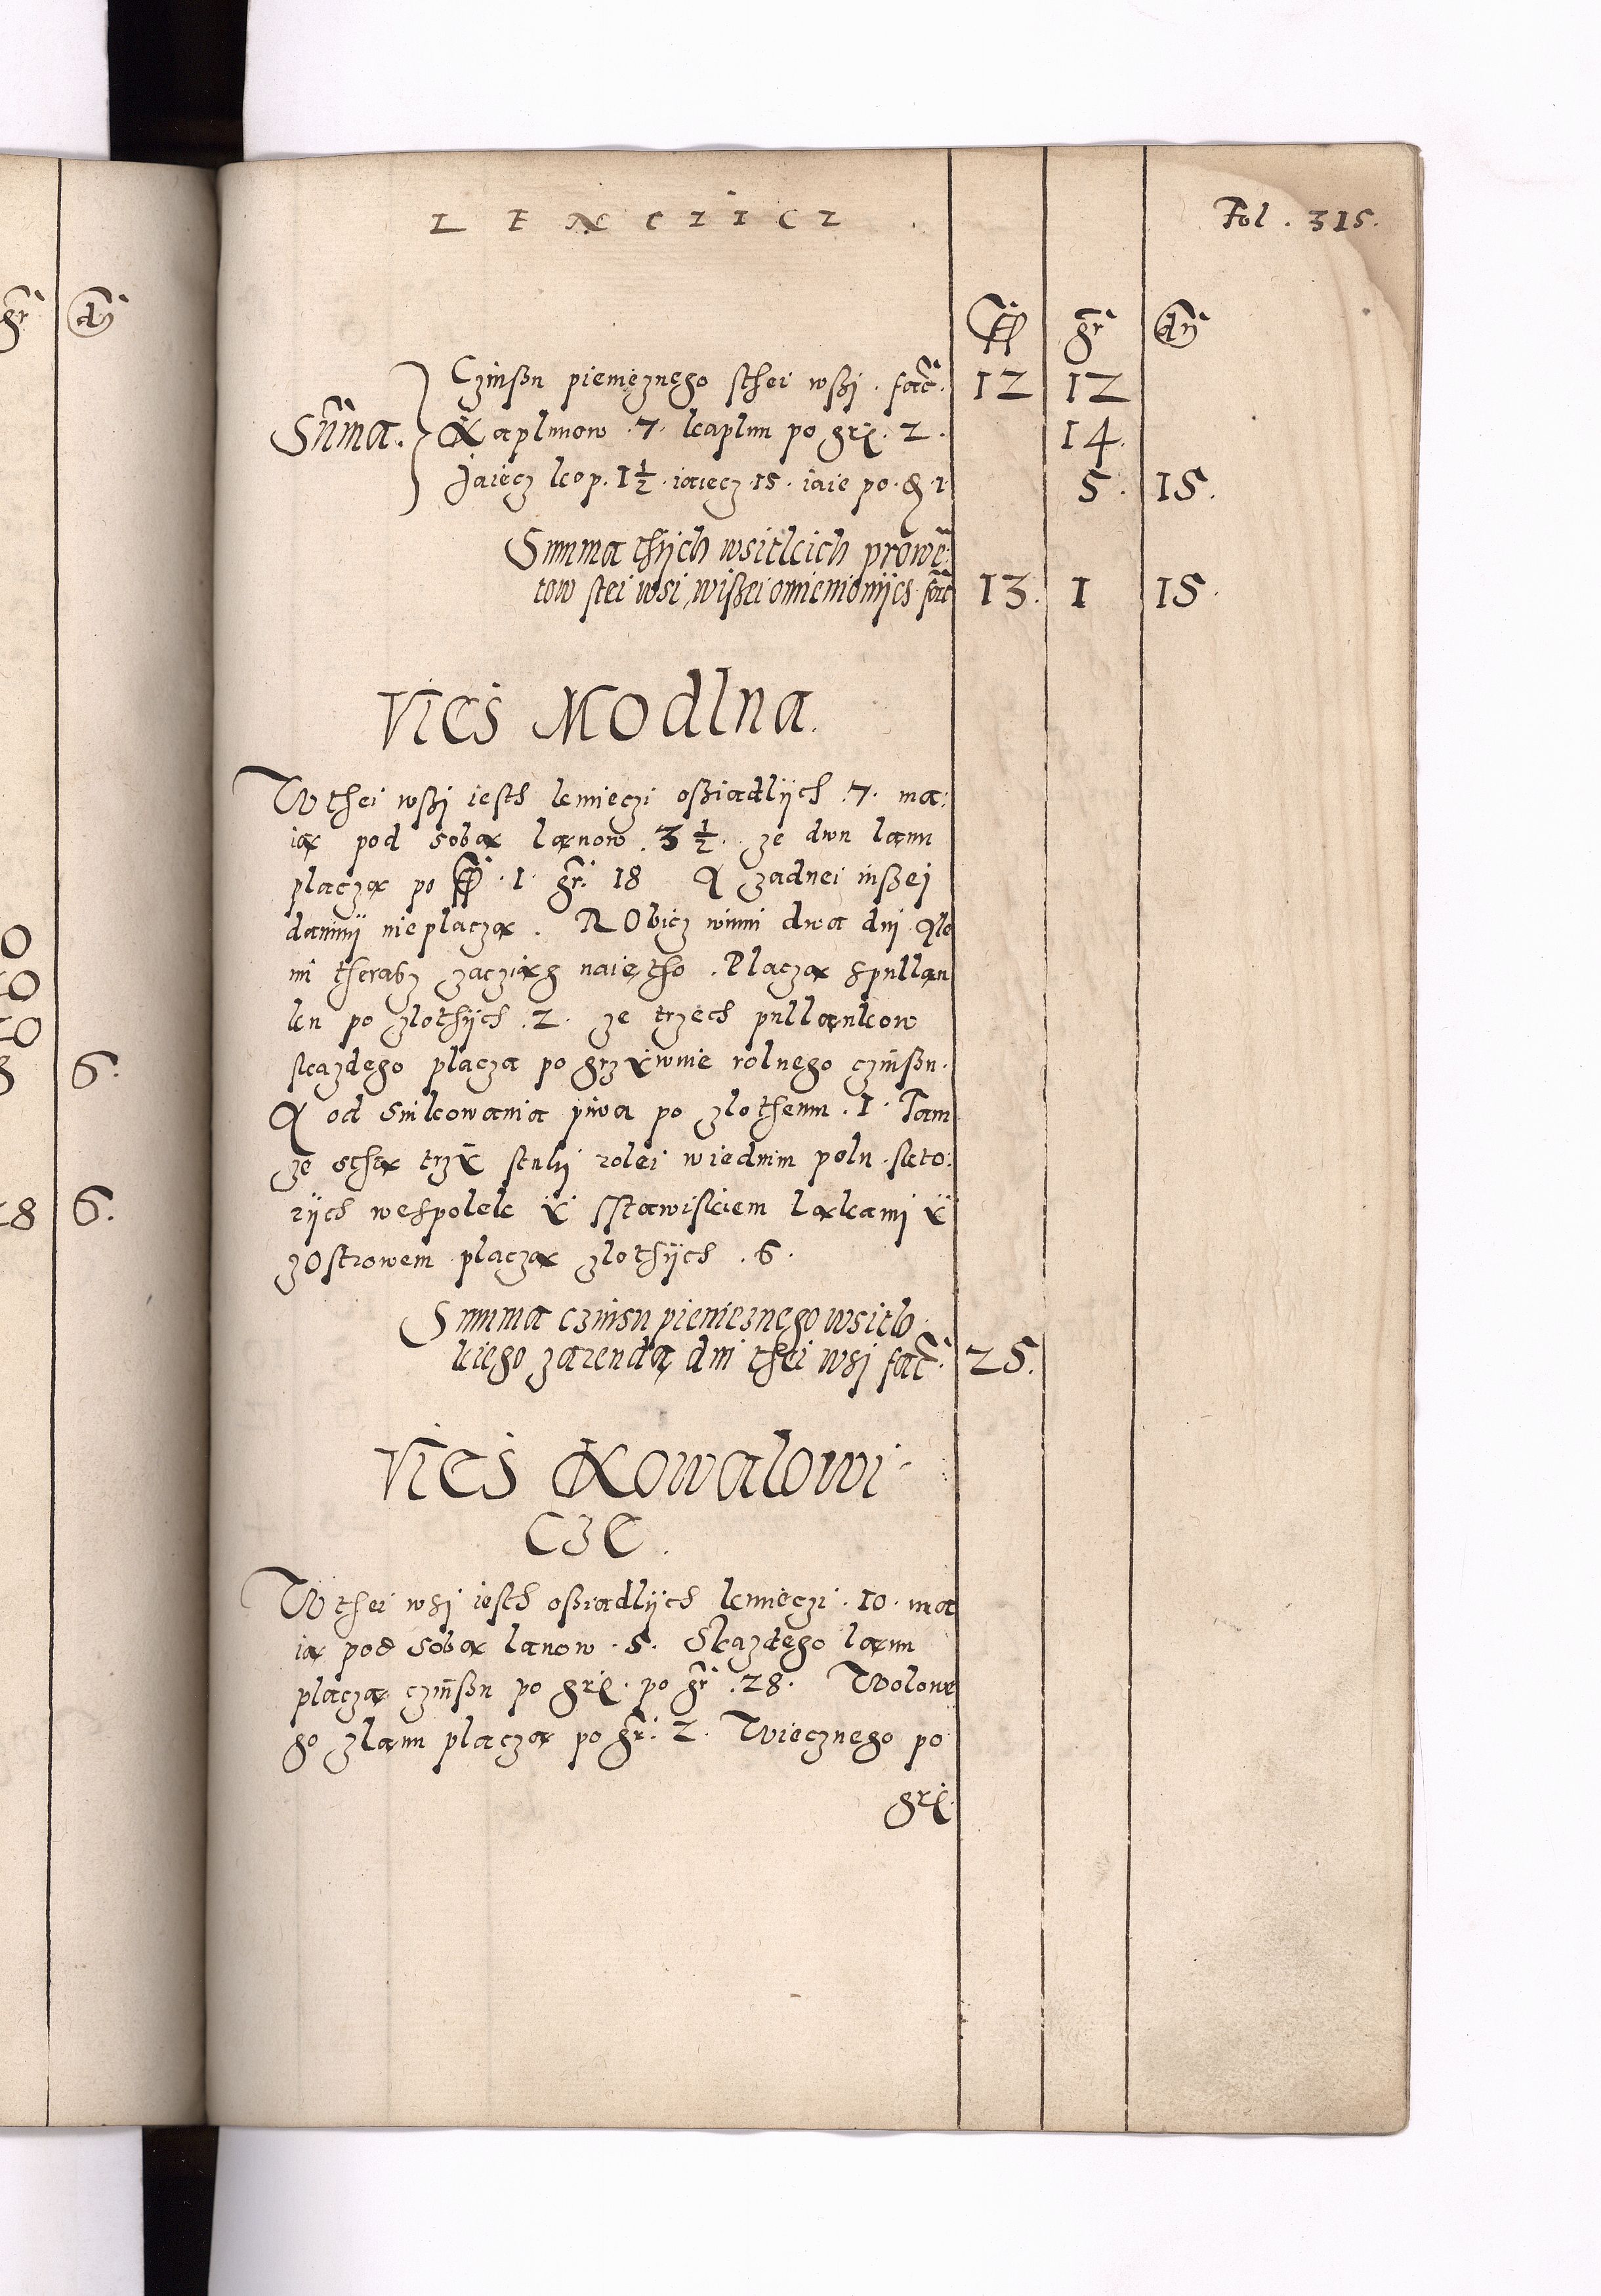 LENCZICZ . Fol . 315.
fl gr dn
Czinßu pienięznego sthei wßi . fac. 12 12
Sūma. Kaplunow .7. kaplun po grz. 2. 14.
Jaiecz kop. 1½ . iaiecz .15. iaie po . d . 1 5. 15.
Summa thÿch wsitkich prowē:
tow stei wsi, wißei omienionÿch fac 13. 1 15.
Vieś Modlna.
W thei wßi iesth kmieczi oßiadlÿch .7. ma:
ią pod sobą lanow .3½. ze dwu lanu
placzą po fl .1. gr. 18 A zadnei inßej
daninÿ nie placzą . RObicz winni dwa dni Alo
ni theraßz zacziąg naiętho . Placzą spullan
ku po zlothÿch .2. ze trzech pullankow
skazdego placza po grzÿwnie rolnego czinßu.
A od Sinkowania piwa po zlothemu .1. Tam
ze sthą trzÿ stuki rolei wiednim polu . skto:
rÿch wespolek ÿ sStawiskiem Ląkami ÿ
zOstrowem placzą zlothÿch .6.
Summa czinsu pieniesznego wsitk
kiego zarendą dni thei wsi fac. 25.
Vieś Kowalowi
cze.
W thei wsi iesth oßiadlÿch kmieczi .10. ma
ią pod sobą lanow .5. Skazdego lanu
placzą czinßu po grz. po gr .28. Wolowe
go zlanu placzą po gr. 2. Wiecznego po
grz.
gr dn
0
6.
8 6.